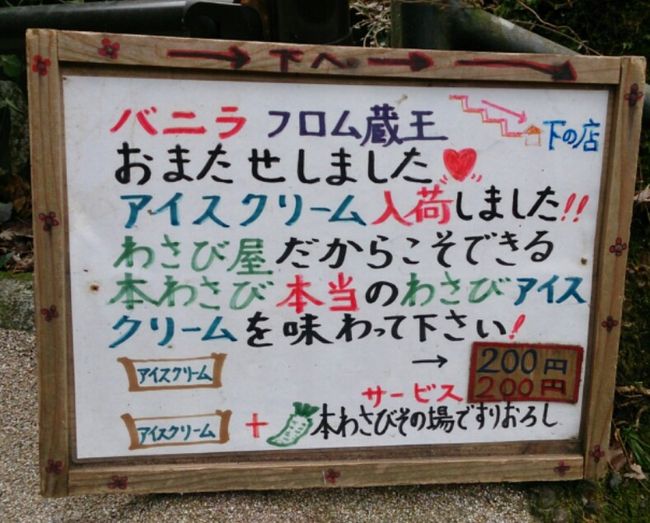 → 下へ → →
バニラ フロム蔵王
下の店
おまたせしました♥
アイスクリーム入荷しました!!
わさび屋だからこそできる
本わさび 本当のわさびアイス
クリームを味わって下さい!
アイスクリーム → 200円
サービス 200円
アイスクリーム + 本わさびその場ですりおろし